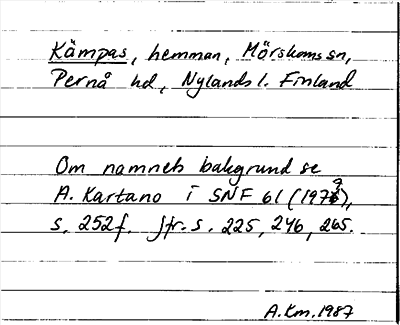 Kämpas, hemman, Mörskoms sn,
Pernå hd, Nylands l. Finland
Om namnets bakgrund se
A. Kartano i SNF 61 (1973),
s. 252f. Jfr. s. 225, 246, 265.
A.Km. 1987